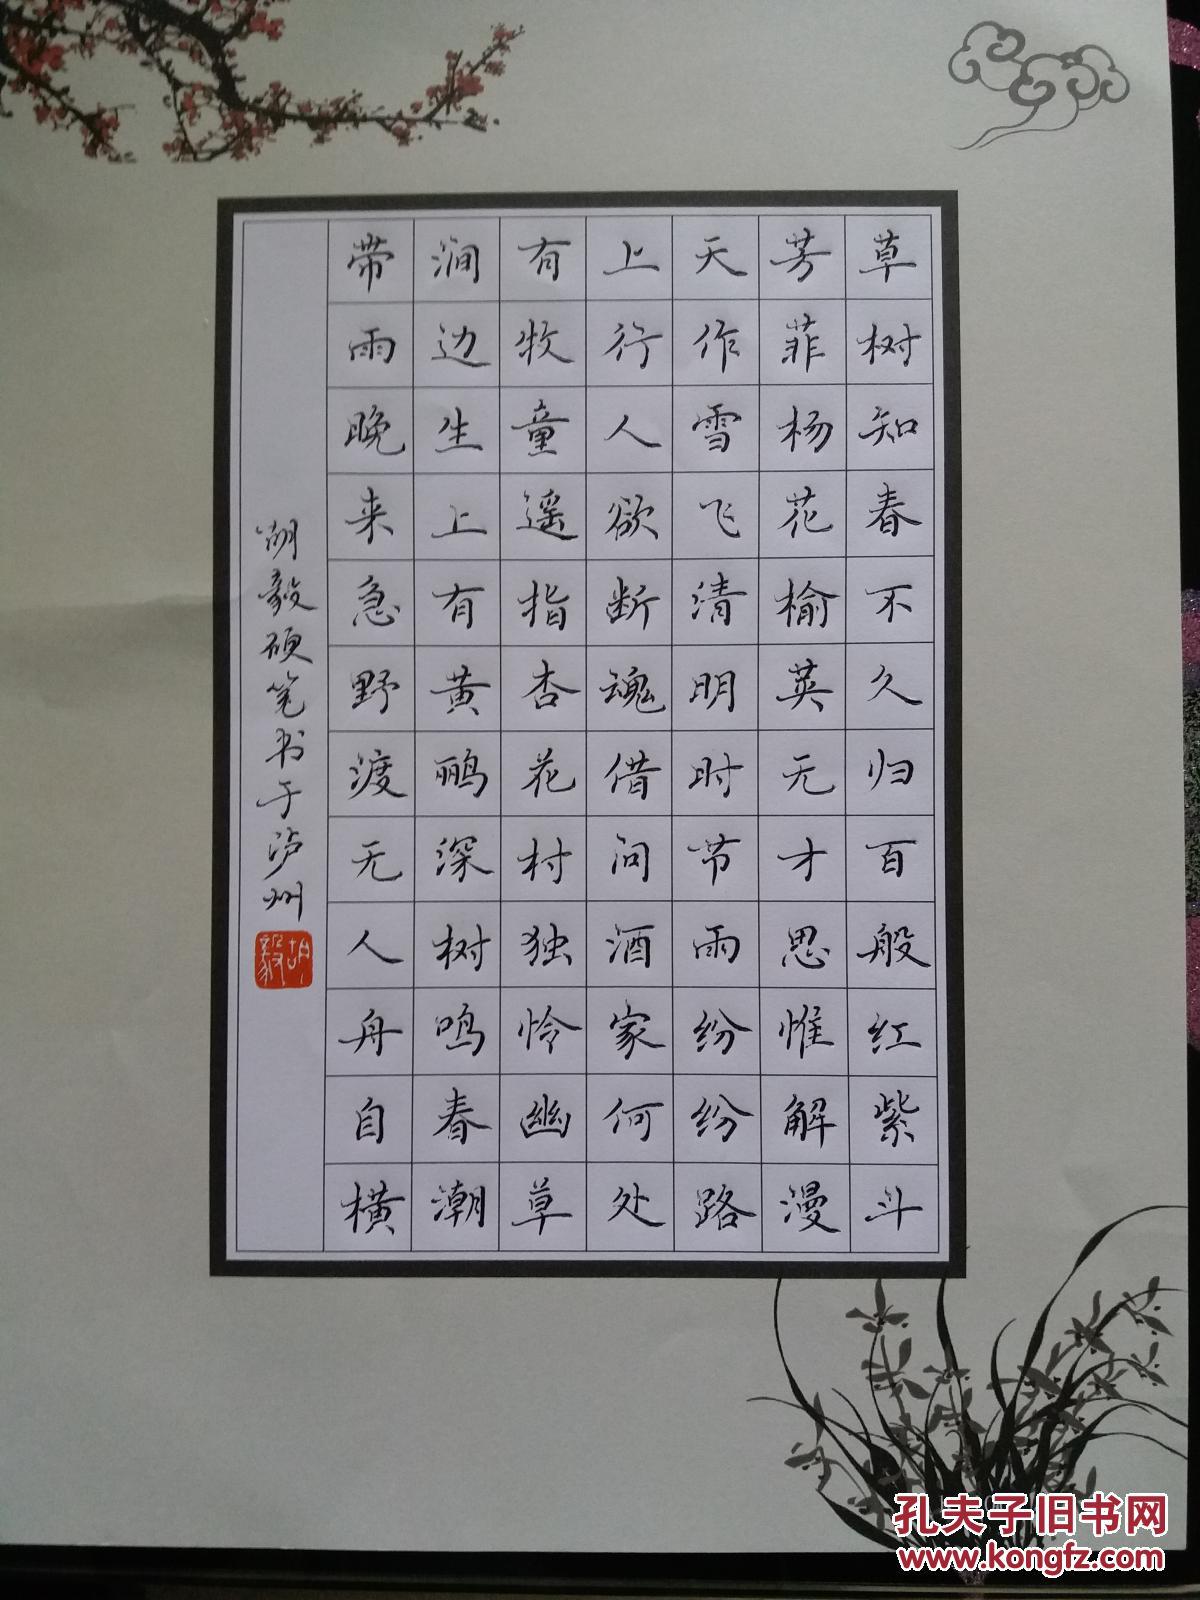 草树知春不久归百般红紫斗
芳菲杨花榆英无才思惟解漫
天作雪飞清明时节雨纷纷路
上行人欲断魂借问酒家何处
有牧童遥指杏花村独怜幽草
涧边生上有黄鹂深树鸣春潮
带雨晚来急野渡无人舟自横
胡毅硬笔书于泸州
胡毅
孔夫子旧书网
www.kongfz.com